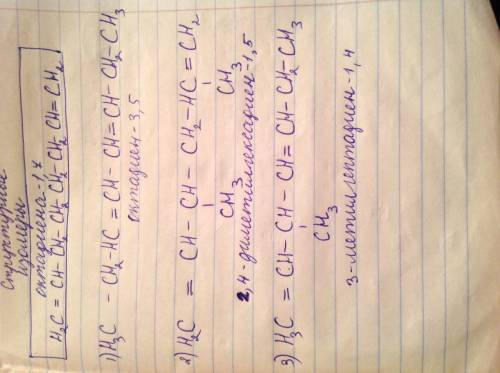 Структурные
изомеры
октадиена-1,7
H₂C = CH - CH₂ - CH₂ - CH₂ - CH₂ - CH = CH₂
1) H₃C - CH₂ - HC = CH - CH = CH - CH₂ - CH₃
октадиен-3,5
2) H₂C = CH - CH - CH - CH₂ - HC = CH₂
CH₃ CH₃
2,4-диметилгексадиен-1,5
3) H₃C = CH - CH - CH = CH - CH₂ - CH₃
CH₃
3-метилгептадиен-1,4